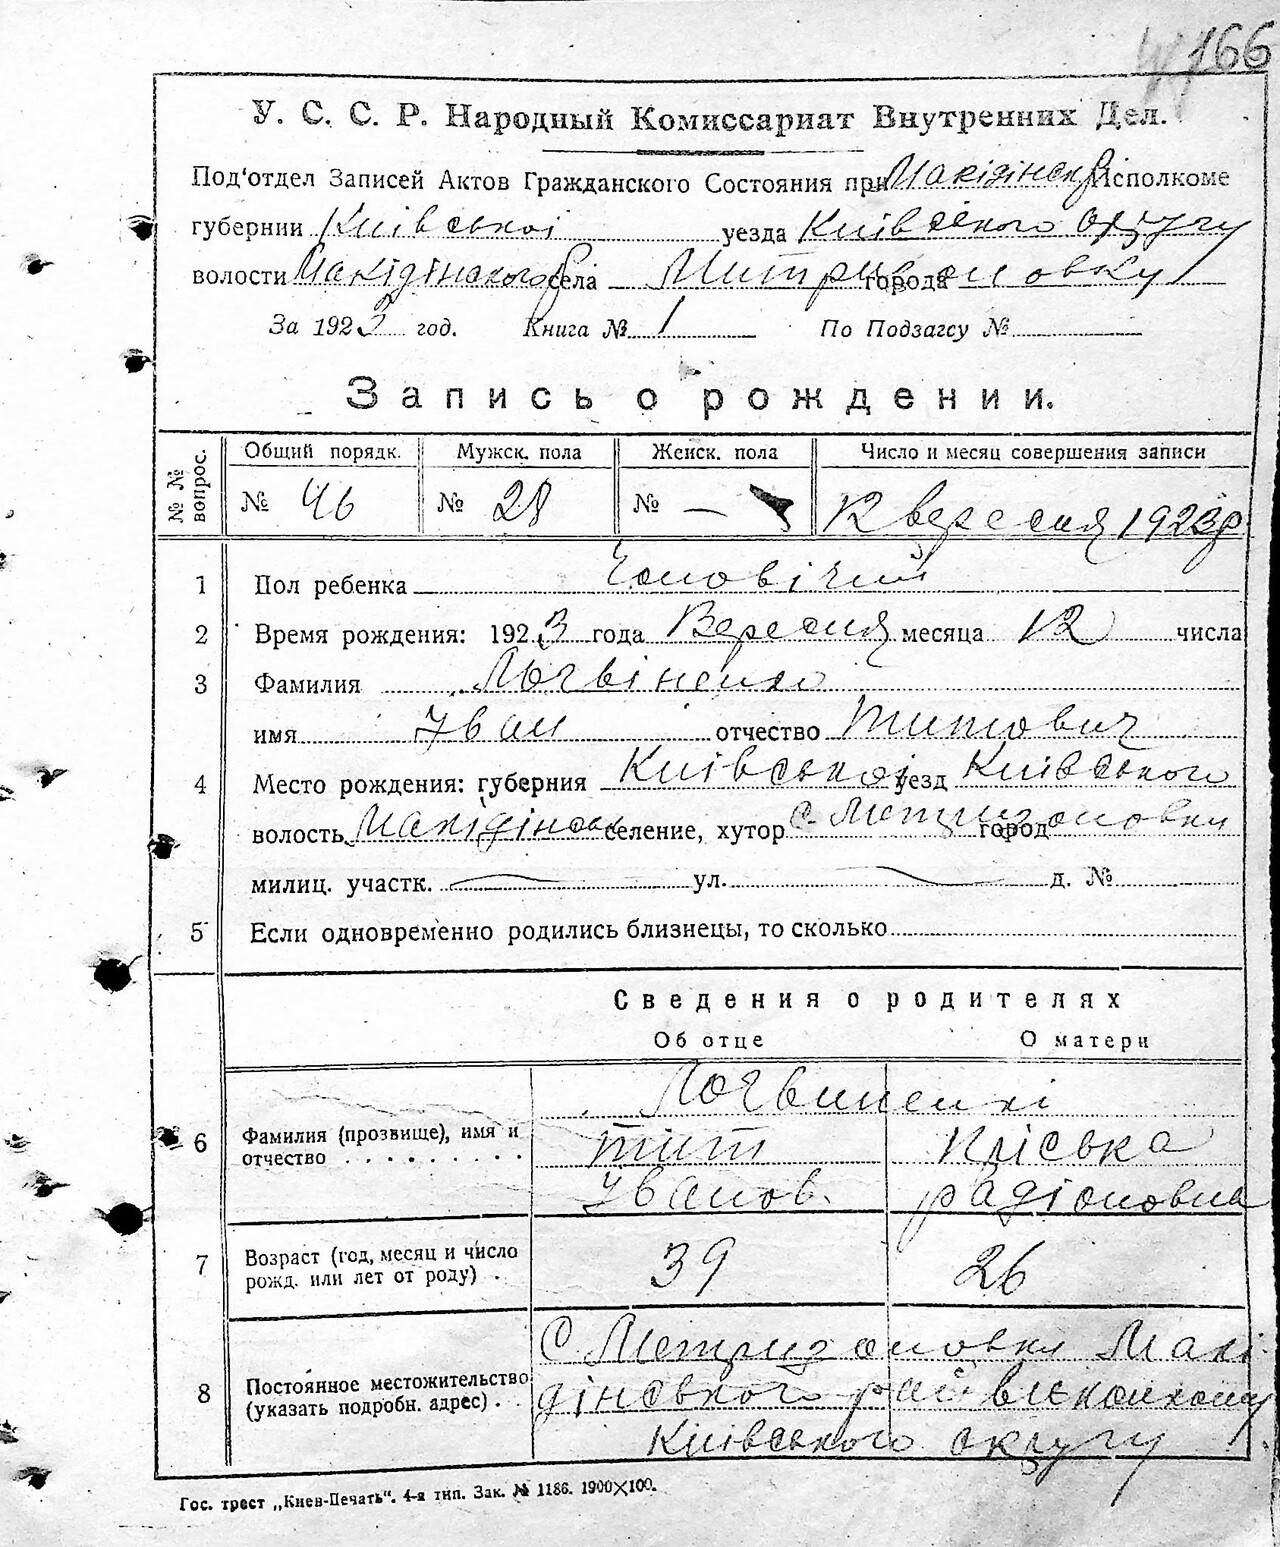 166
У. С. С. Р. Народный Комиссариат Внутренних Дел.
Под'отдел Записей Актов Гражданского Состояния при Макідінск Исполкоме
губернии Київської уезда Київського округу
волости Макідінского села города
За 1923 год. Книга № 1 По Подзагсу №
Запись о рождении.
№ № вопрос. Общий порядк. Мужск. пола Женск. пола Число и месяц совершения записи
№ 46 № 28 № — 12 вересня 1923 р
1 Пол ребенка Чоловічий
2 Время рождения: 1923 года Вересня месяца 12 числа
3 Фамилия Логвіненко
имя Іван отчество Титович
4 Место рождения: губерния Київської уезд Київського
волость Макідінськ селение, хутор с. город
милиц. участк. ул. д. №
5 Если одновременно родились близнецы, то сколько
Сведения о родителях
Об отце О матери
Логвиненкі
6 Фамилия (прозвище), имя и отчество . . . . . . . . . Тит Пріська
Іванов. Радіоновна
7 Возраст (год, месяц и число рожд. или лет от роду) . 39 26
С Макі-
8 Постоянное местожительство (указать подробн. адрес) . . дінського
Київського округу
Гос. трест „Киев-Печать“. 4-я тип. Зак. № 1186. 1900×100.